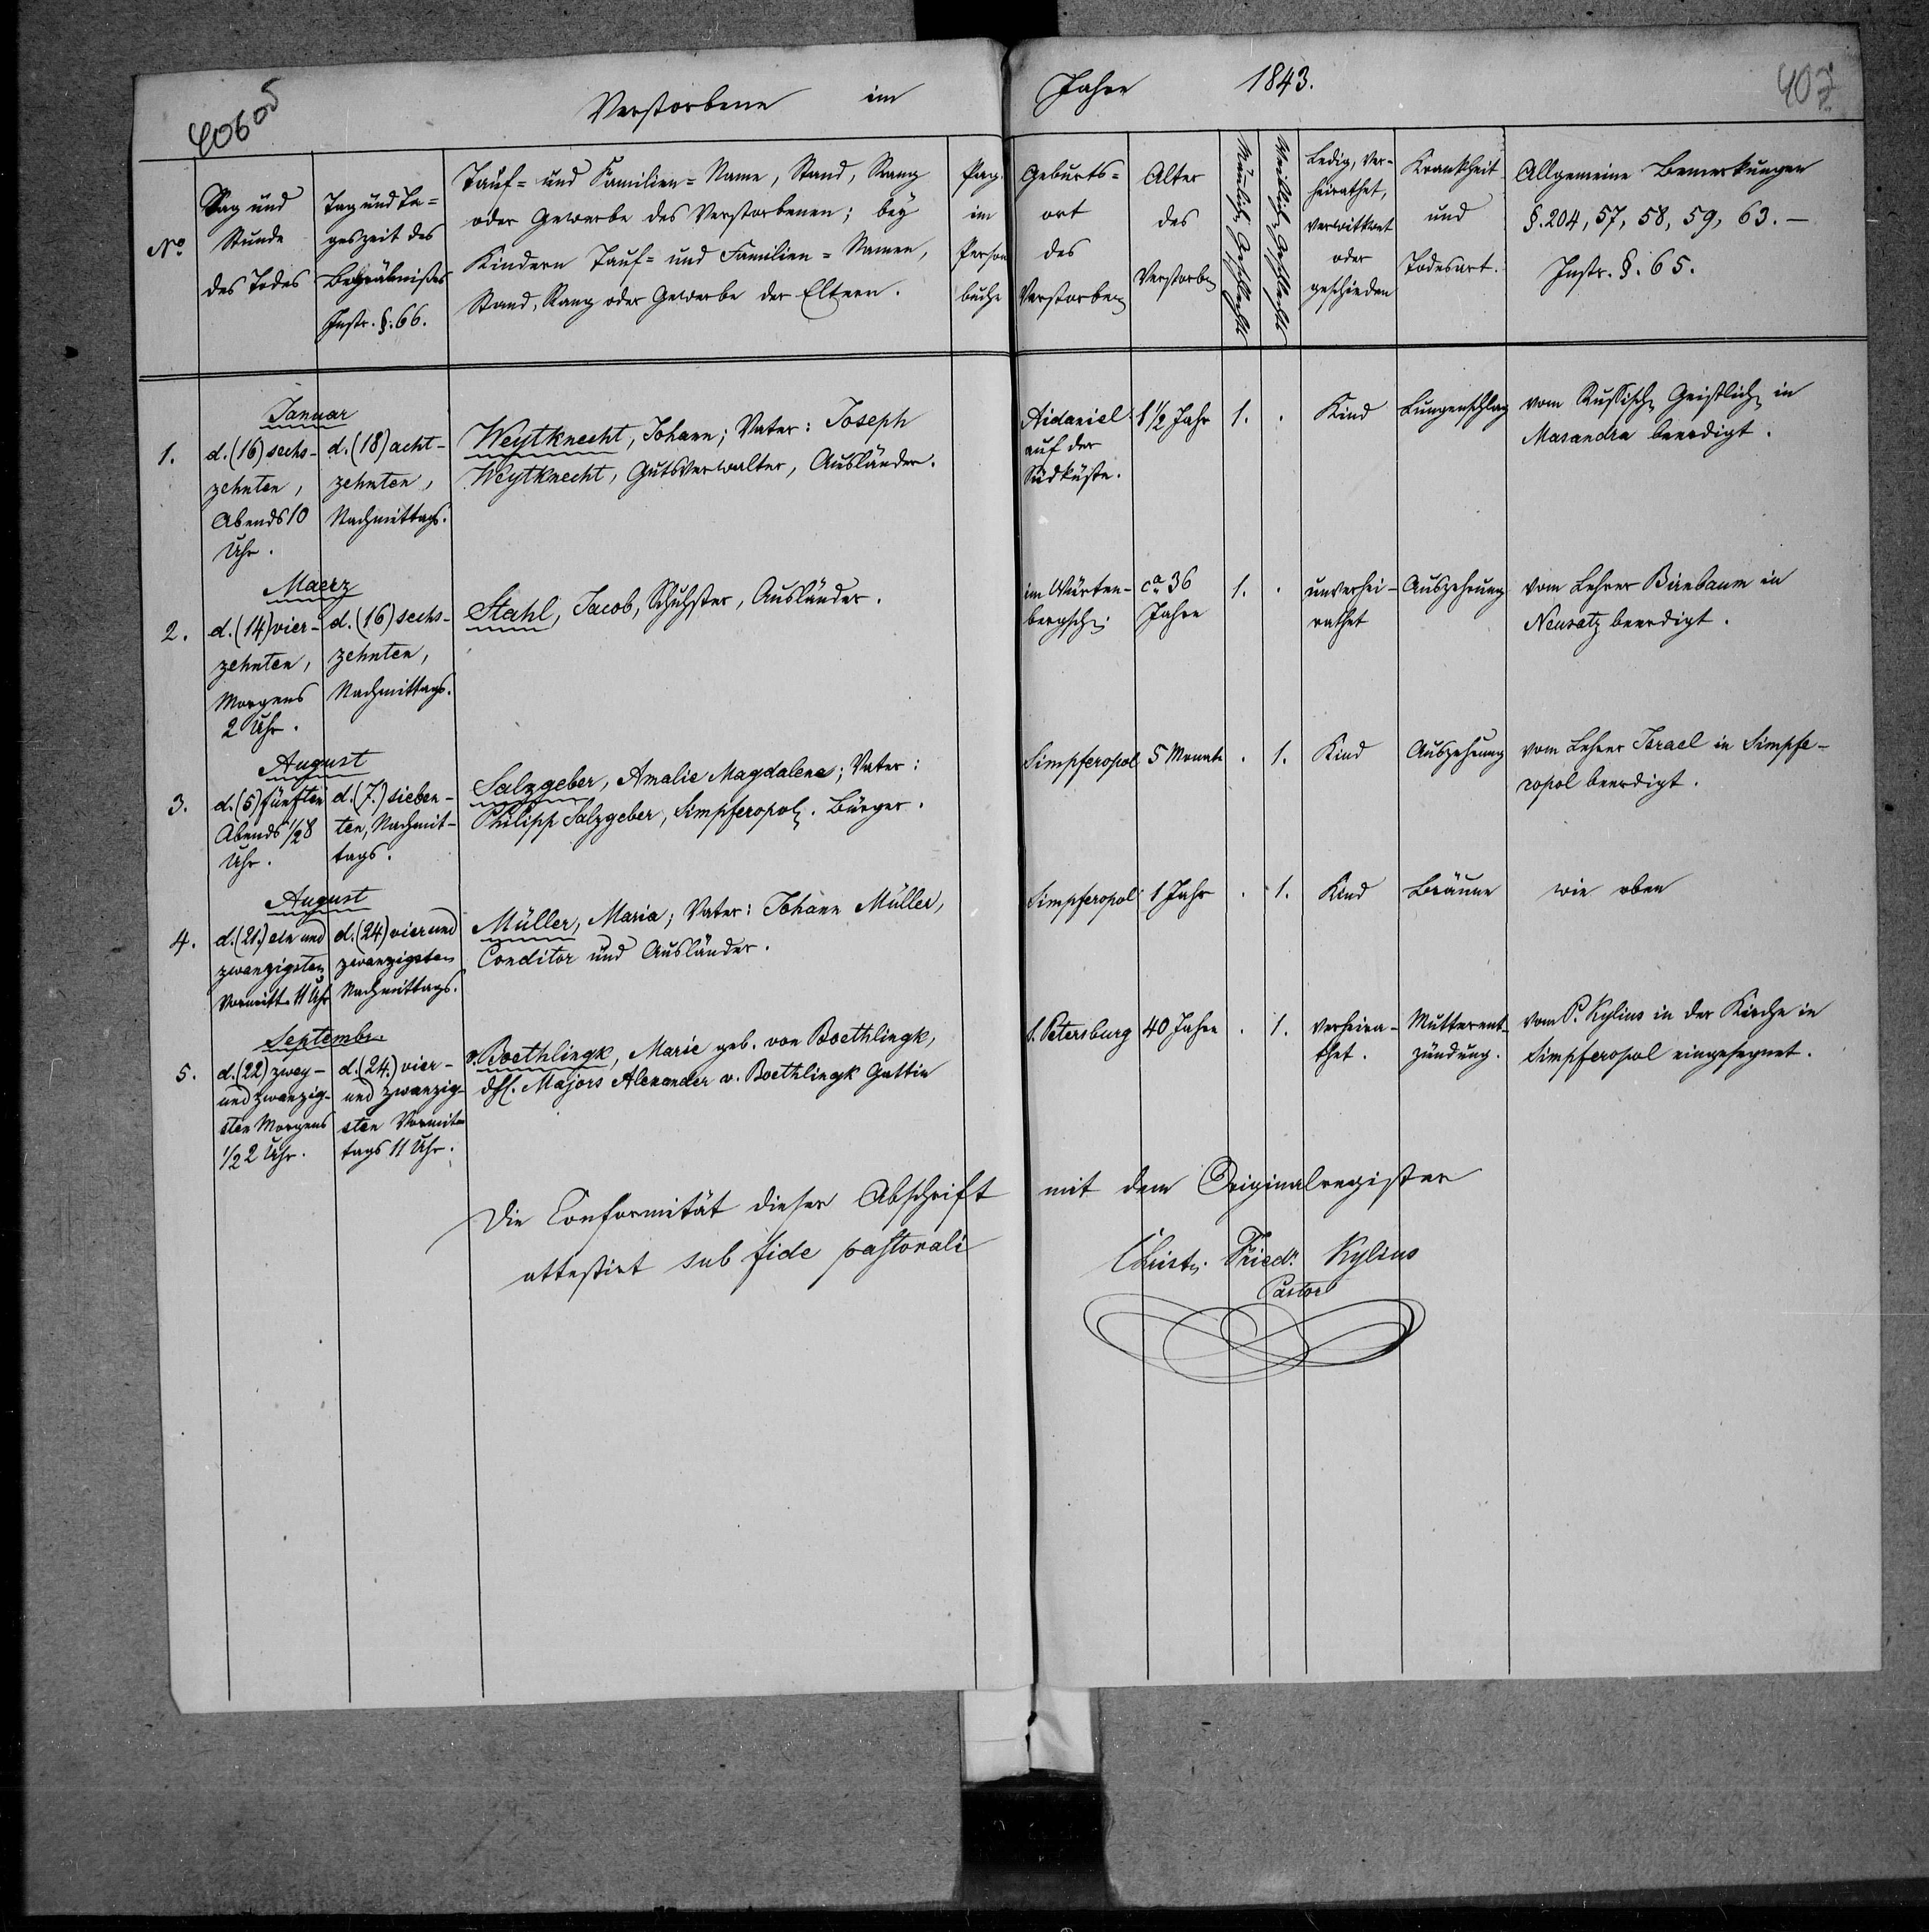 406об
407
Verstorbene im Jahre 1843.
No
Tag und
Stunde
des Todes
Tag und Ta=
geszeit des
Begräbnißes
Instr. §. 66.
Tauf= und Familien=Name, Stand, Rang
oder Gewerbe des Verstorbenen; bey
Kindern Tauf= und Familien=Namen,
Stand, Rang oder Gewerbe der Eltern.
Pag.
im
Person
buche
Geburts=
ort
des
Verstorben
Alter
des
Verstorb
Mänlich Geschlechts
Weiblich Geschlechts
Ledig, ver-
heirathet,
verwittwet
oder
geschieden
Krankheit
und
Todesart.
Allgemeine Bemerkungen
§. 204, 57, 58, 59, 63. —
Instr. §. 65.
Januar
1.
d. (16) sechs-
zehnten,
Abends 10
Uhr.
d. (18) acht-
zehnten,
Nachmittags.
Weytknecht, Johann; Vater: Joseph
Weytknecht, Gutsverwalter, Ausländer.
Aidaniel
auf der
Südküste.
1 1/2 Jahr
1.
.
Kind
Lungenschlag
vom Russisch Geistlich in
Masandra beerdigt.
Maerz
2.
d. (14) vier-
zehnten,
Morgens
2 Uhr.
d. (16) sechs-
zehnten,
Nachmittags.
Stahl, Jacob, Schuster, Ausländer.
im Würten-
bergsch.
ca 36
Jahre
1.
.
unverhei-
rathet
Auszehrung
vom Lehrer Birnbaum in
Neusatz beerdigt.
August
3.
d. (5) fünften
Abends 1/2 8
Uhr.
d. (7.) sieben-
ten, Nachmit-
tags.
Salzgeber, Amalie Magdalena; Vater:
Philipp Salzgeber, Simpferopol. Bürger.
Simpferopol
5 Monate
.
1.
Kind
Auszehrung
vom Lehrer Israel in Simpfe-
ropol beerdigt.
August
4.
d. (21.) ein und
zwanzigsten
Vormitt. 11 Uhr
d. (24) vier und
zwanzigsten
Nachmittags.
Müller, Maria; Vater: Johann Müller,
Conditor und Ausländer.
Simpferopol
1 Jahr
.
1.
Kind
Bräune
wie oben
Septembr.
5.
d. (22) zwey-
und zwanzig-
sten Morgens
1/2 2 Uhr.
d. (24.) vier-
und zwanzig-
sten Vormit-
tags 11 Uhr.
v. Boethlingk, Marie geb. von Boethlingk,
Majors Alexander v. Boethlingk Gattin
S. Petersburg
40 Jahre
.
1.
verheira-
thet.
Mutterent-
zündung.
vom P. Kylius in der Kirche in
Simpferopol eingesegnet.
Die Conformität dieser Abschrift mit dem Originalregister
attestirt sub fide pastorali
Christ. Friedr. Kylius
Pastor